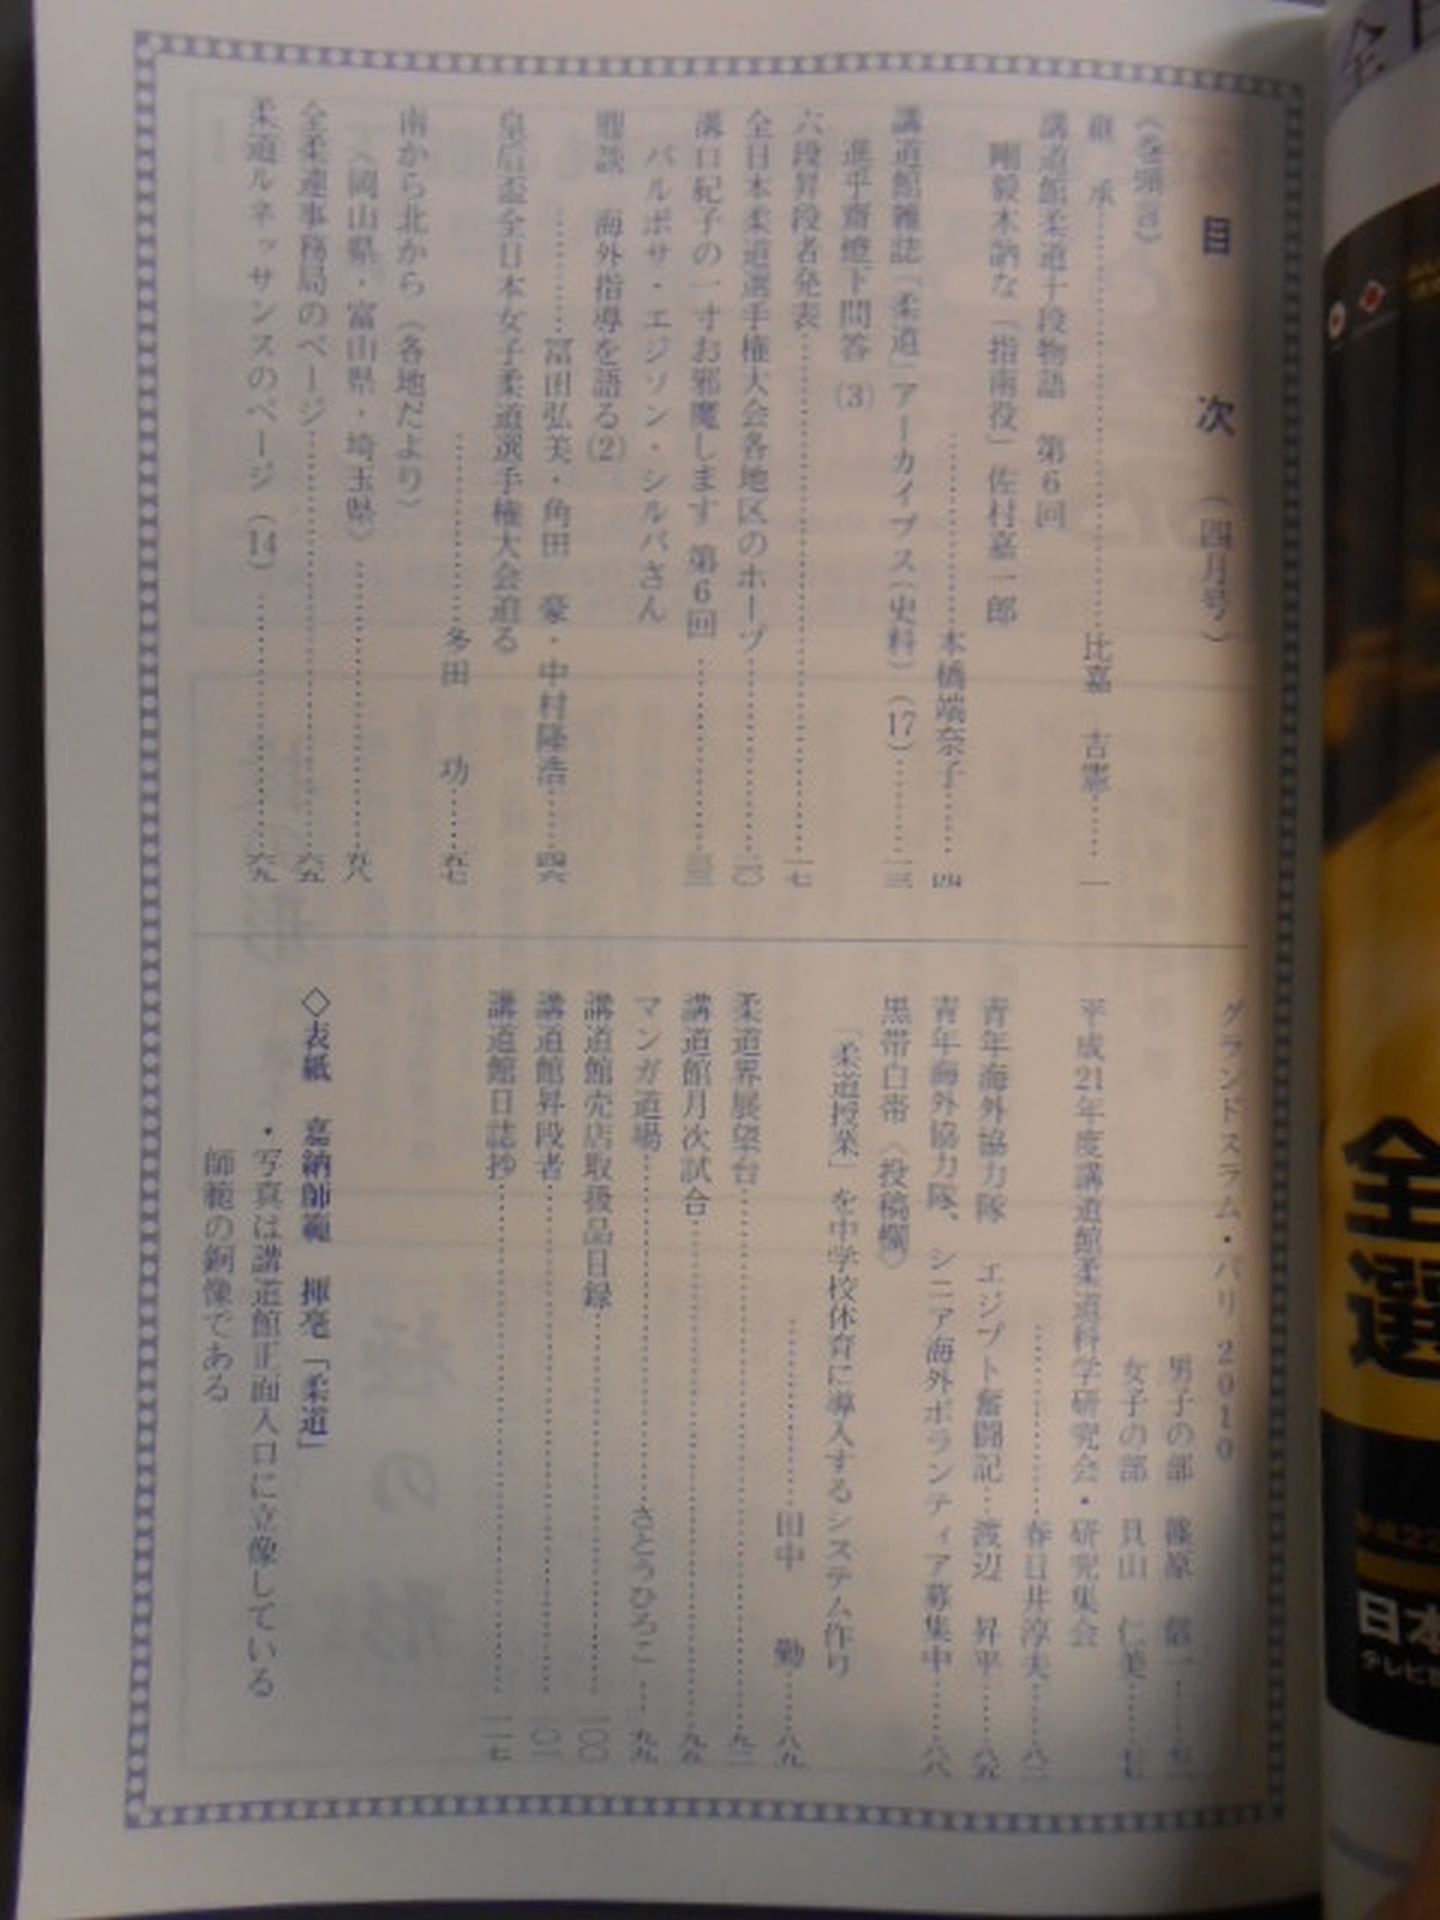 目次（四月号）
〈巻頭言〉
継承……比嘉 吉憲……一
講道館柔道十段物語 第6回
剛毅木訥な「指南役」佐村嘉一郎
……本橋端奈子……四
講道館雑誌「柔道」アーカイブス（史料）（17）……一三
進乎齋燈下問答（3）
六段昇段者発表……一七
全日本柔道選手権大会各地区のホープ……二〇
溝口紀子の一寸お邪魔します 第6回……三三
バルボサ・エジソン・シルバさん
鼎談 海外指導を語る（2）
……冨田弘美・角田 豪・中村隆浩……四六
皇后盃全日本女子柔道選手権大会迫る
……多田 功……五七
南から北から（各地だより）
〈岡山県・富山県・埼玉県〉……五八
全柔連事務局のページ……六五
柔道ルネッサンスのページ（14）……六九
グランドスラム・パリ 2010
男子の部 篠原 信一……七一
女子の部 貝山 仁美……七七
平成21年度講道館柔道科学研究会・研究集会
……春日井淳夫……八二
青年海外協力隊 エジプト奮闘記……渡辺 昇平……八五
青年海外協力隊、シニア海外ボランティア募集中……八八
黒帯白帯〈投稿欄〉
「柔道授業」を中学校体育に導入するシステム作り
……田中 勤……八九
柔道界展望台……九二
講道館月次試合
マンガ道場……さとうひろこ……九九
講道館売店取扱品目録……一〇〇
講道館昇段者……一〇一
講道館日誌抄……一一七
◇表紙 嘉納師範 揮毫「柔道」
・写真は講道館正面入口に立像している
師範の銅像である
全
選
日本
テレビ